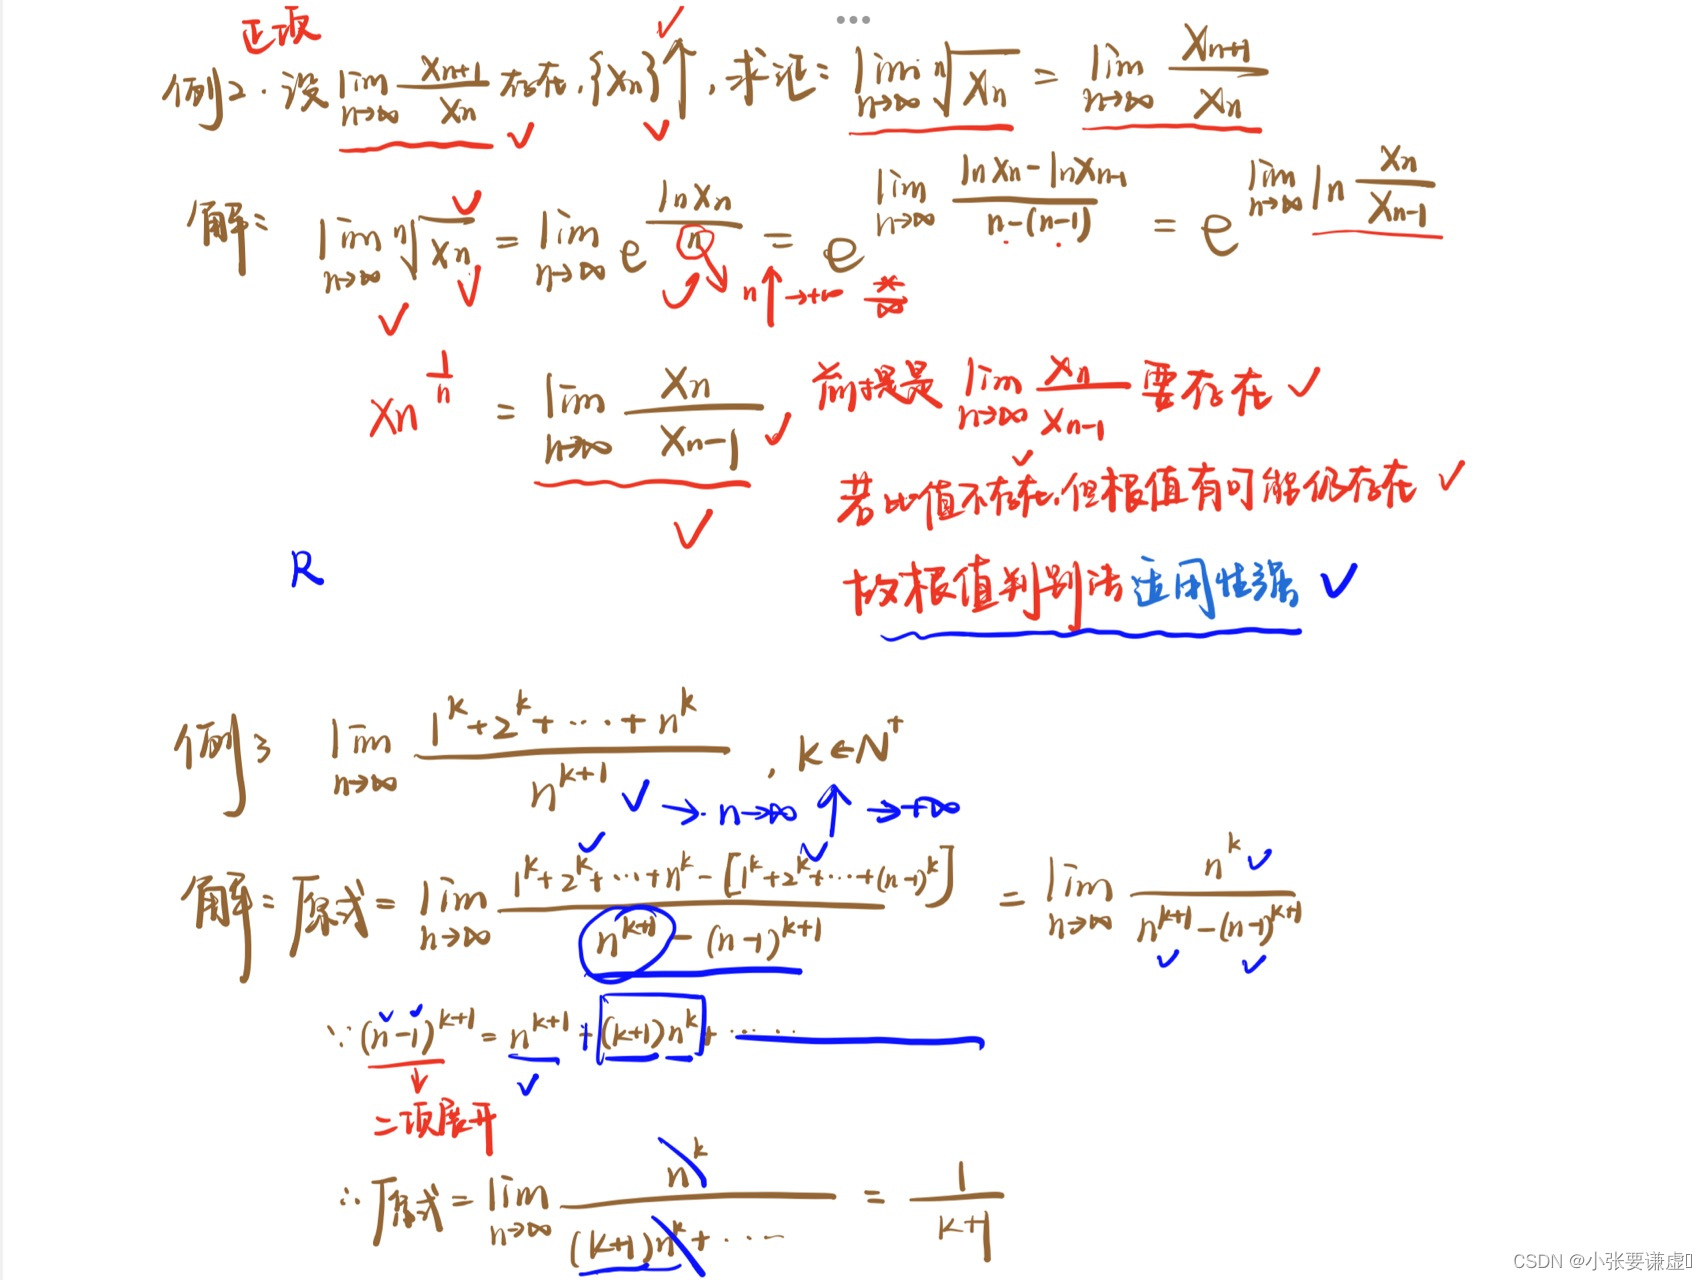 正项
例2. 设 lim_{n→∞} x_{n+1}/x_n 存在, {x_n}↑, 求证: lim_{n→∞} ⁿ√x_n = lim_{n→∞} x_{n+1}/x_n
解: lim_{n→∞} ⁿ√x_n = lim_{n→∞} e^{ln x_n / n} = e^{lim_{n→∞} (ln x_n - ln x_{n-1})/(n-(n-1))} = e^{lim_{n→∞} ln x_n/x_{n-1}}
n↑→+∞ */∞
x_n^{1/n} = lim_{n→∞} x_n/x_{n-1} 前提是 lim_{n→∞} x_n/x_{n-1} 要存在
若比值不存在, 但根值有可能仍存在
R
故根值判别法适用性强
例3 lim_{n→∞} (1^k+2^k+⋯+n^k)/n^{k+1}, k∈N⁺
→ n→∞ ↑ →+∞
解: 原式 = lim_{n→∞} (1^k+2^k+⋯+n^k-[1^k+2^k+⋯+(n-1)^k])/(n^{k+1}-(n-1)^{k+1}) = lim_{n→∞} n^k/(n^{k+1}-(n-1)^{k+1})
∵ (n-1)^{k+1} = n^{k+1}+(k+1)n^k+⋯⋯
二项展开
∴ 原式 = lim_{n→∞} n^k/((k+1)n^k+⋯) = 1/(k+1)
CSDN @小张要谦虚